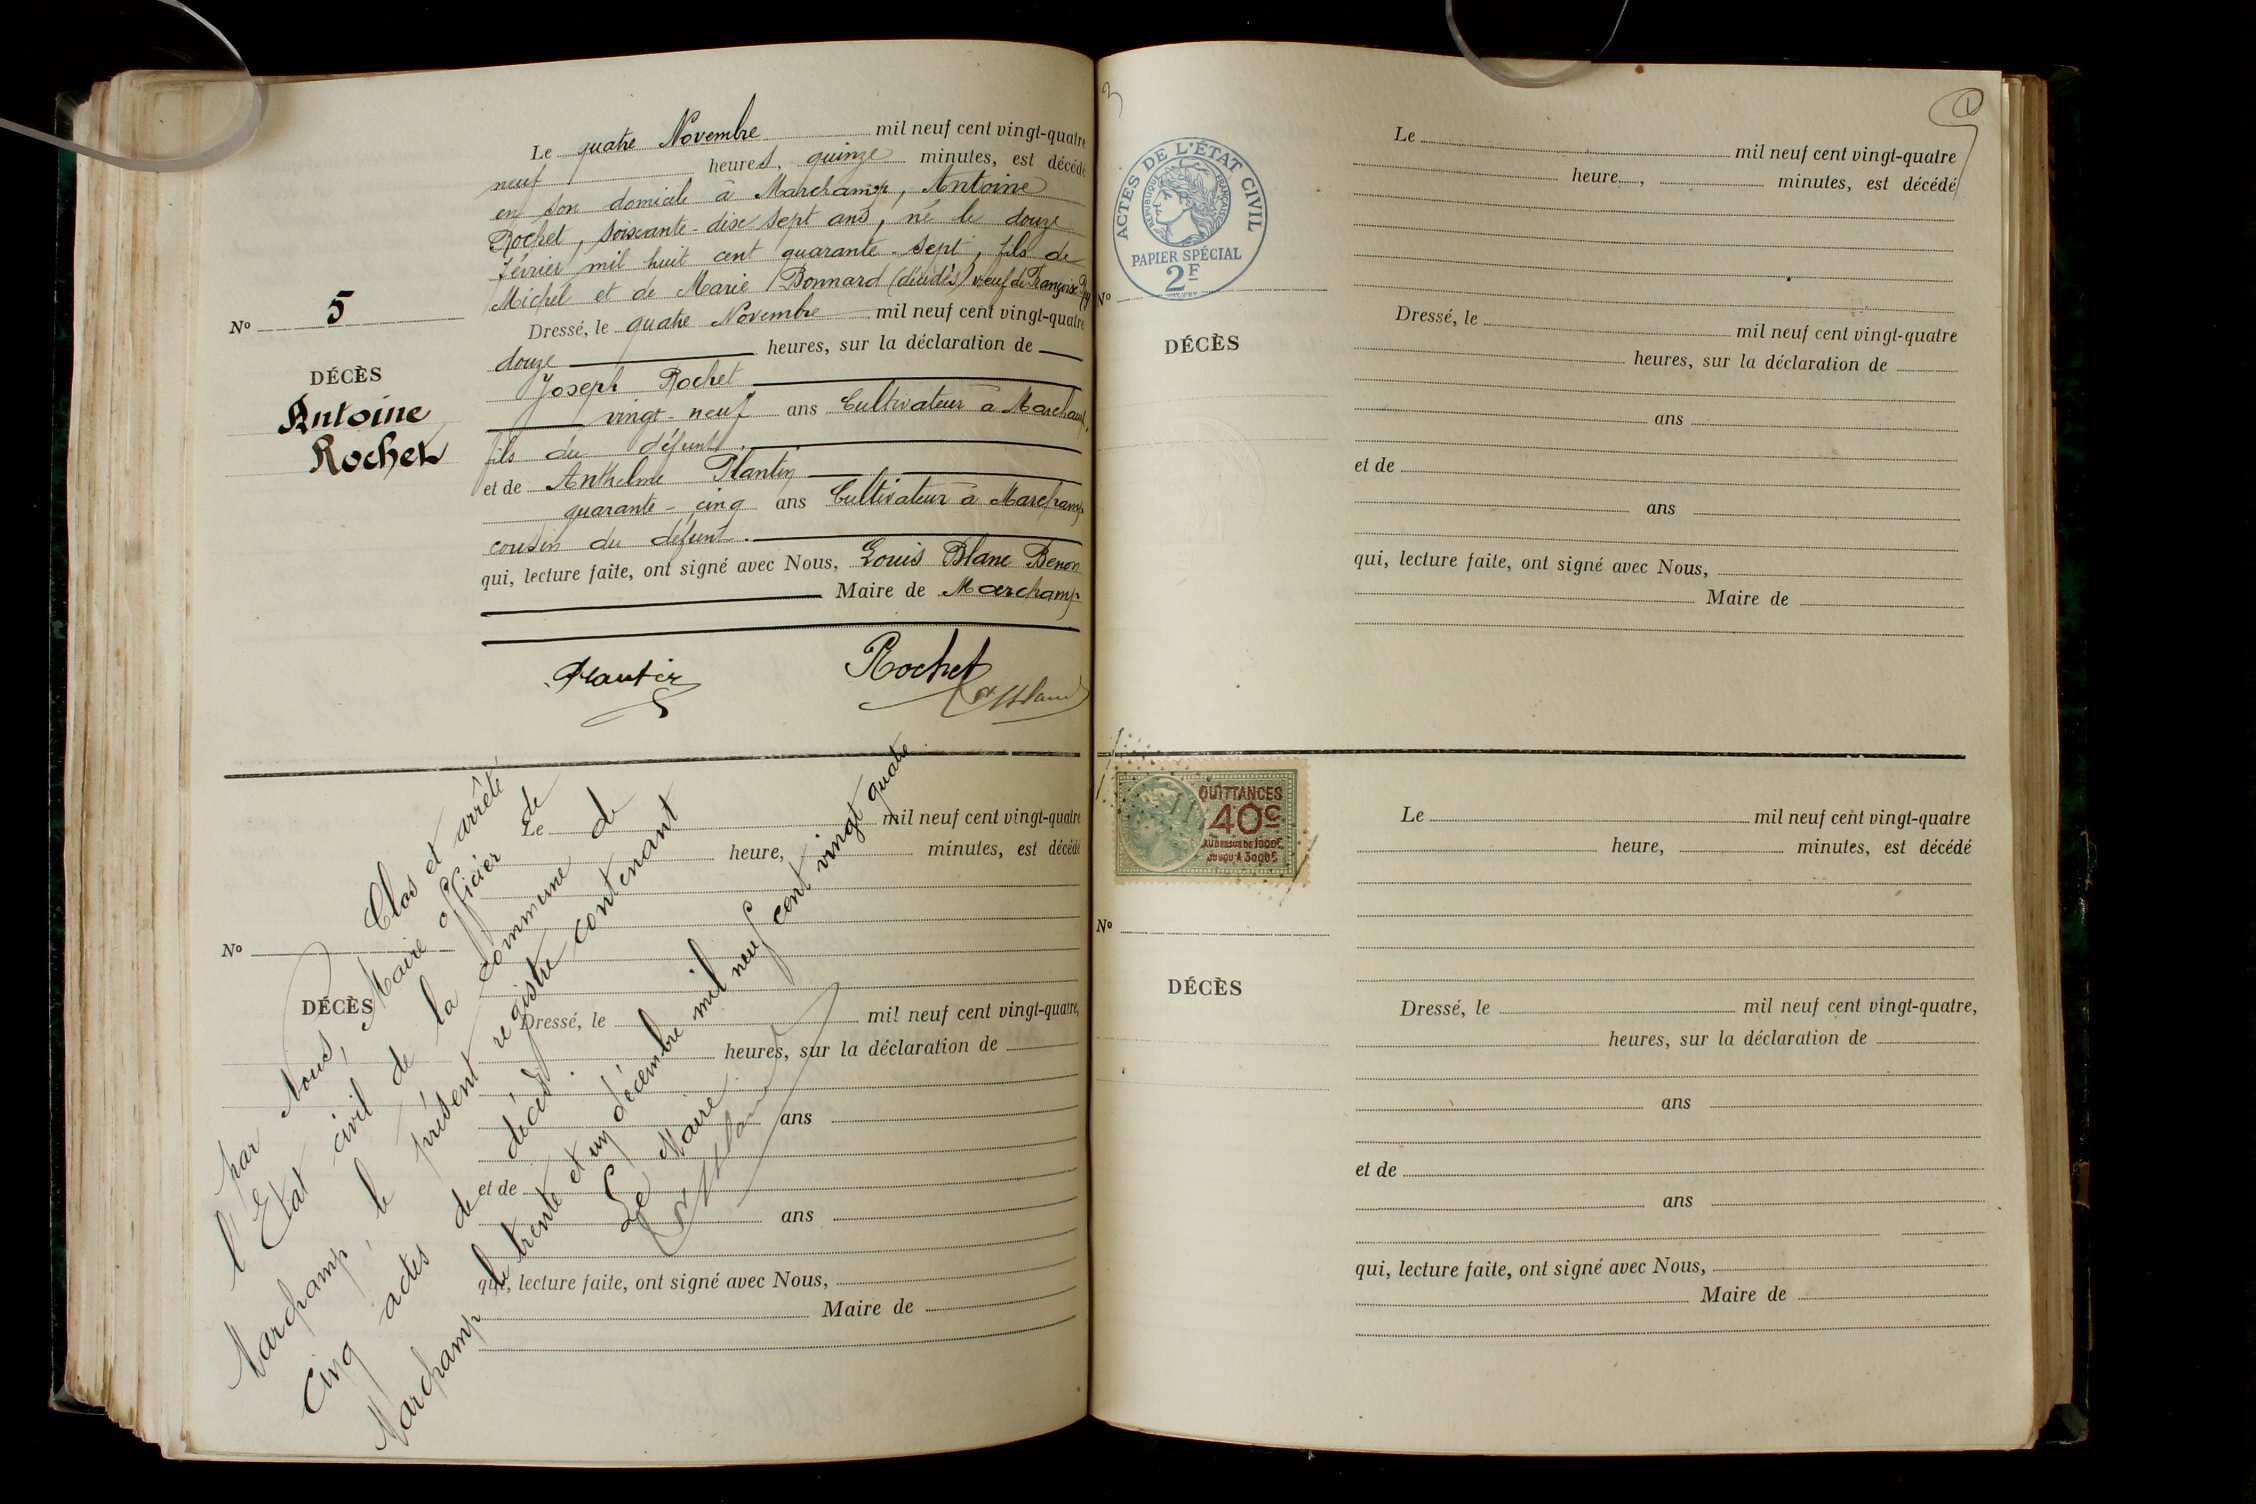 Le quatre Novembre mil neuf cent vingt-quatre
neuf heures, quinze minutes, est décédé
en son domicile à Marchamp, Antoine
Rochet, soixante-dix sept ans, né le douze
février mil huit cent quarante-sept, fils de
Michel et de Marie Bonnard (décédés) veuf de Françoise
Nº 5
DÉCÈS
Antoine
Rochet
Dressé, le quatre Novembre mil neuf cent vingt-quatre
douze heures, sur la déclaration de
Joseph Rochet
vingt-neuf ans Cultivateur à Marchamp,
fils du défunt.
et de Anthelme Plantin
quarante-cinq ans Cultivateur à Marchamp
cousin du défunt.
qui, lecture faite, ont signé avec Nous, Louis Blanc Benon
Maire de Marchamp
Plantin
Rochet
Clos et arrêté
par Nous, Maire officier de
l'Etat civil de la commune de
Marchamp, le présent registre contenant
Cinq actes de décès.
Marchamp le trente et un décembre mil neuf cent vingt quatre
Le Maire
Le mil neuf cent vingt-quatre
heure, minutes, est décédé
Nº
DÉCÈS
Dressé, le mil neuf cent vingt-quatre,
heures, sur la déclaration de
ans
et de
ans
qui, lecture faite, ont signé avec Nous,
Maire de
ACTES DE L'ÉTAT CIVIL
RÉPUBLIQUE FRANÇAISE
PAPIER SPÉCIAL
2F
Le mil neuf cent vingt-quatre
heure, minutes, est décédé
Nº
DÉCÈS
Dressé, le mil neuf cent vingt-quatre
heures, sur la déclaration de
ans
et de
ans
qui, lecture faite, ont signé avec Nous,
Maire de
QUITTANCES
40c
AU DESSUS DE 1000F
JUSQU'À 3000F
Le mil neuf cent vingt-quatre
heure, minutes, est décédé
Nº
DÉCÈS
Dressé, le mil neuf cent vingt-quatre,
heures, sur la déclaration de
ans
et de
ans
qui, lecture faite, ont signé avec Nous,
Maire de